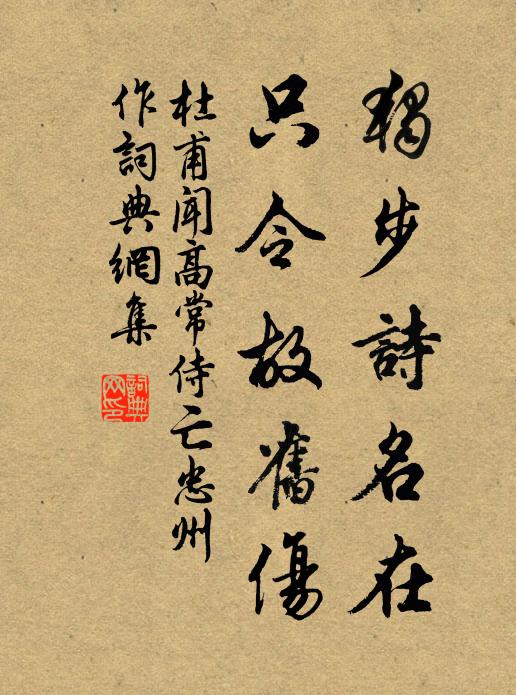 獨步詩名在
只令故舊傷
杜甫聞高常侍亡忠州
作詞典網集
詞典
网印